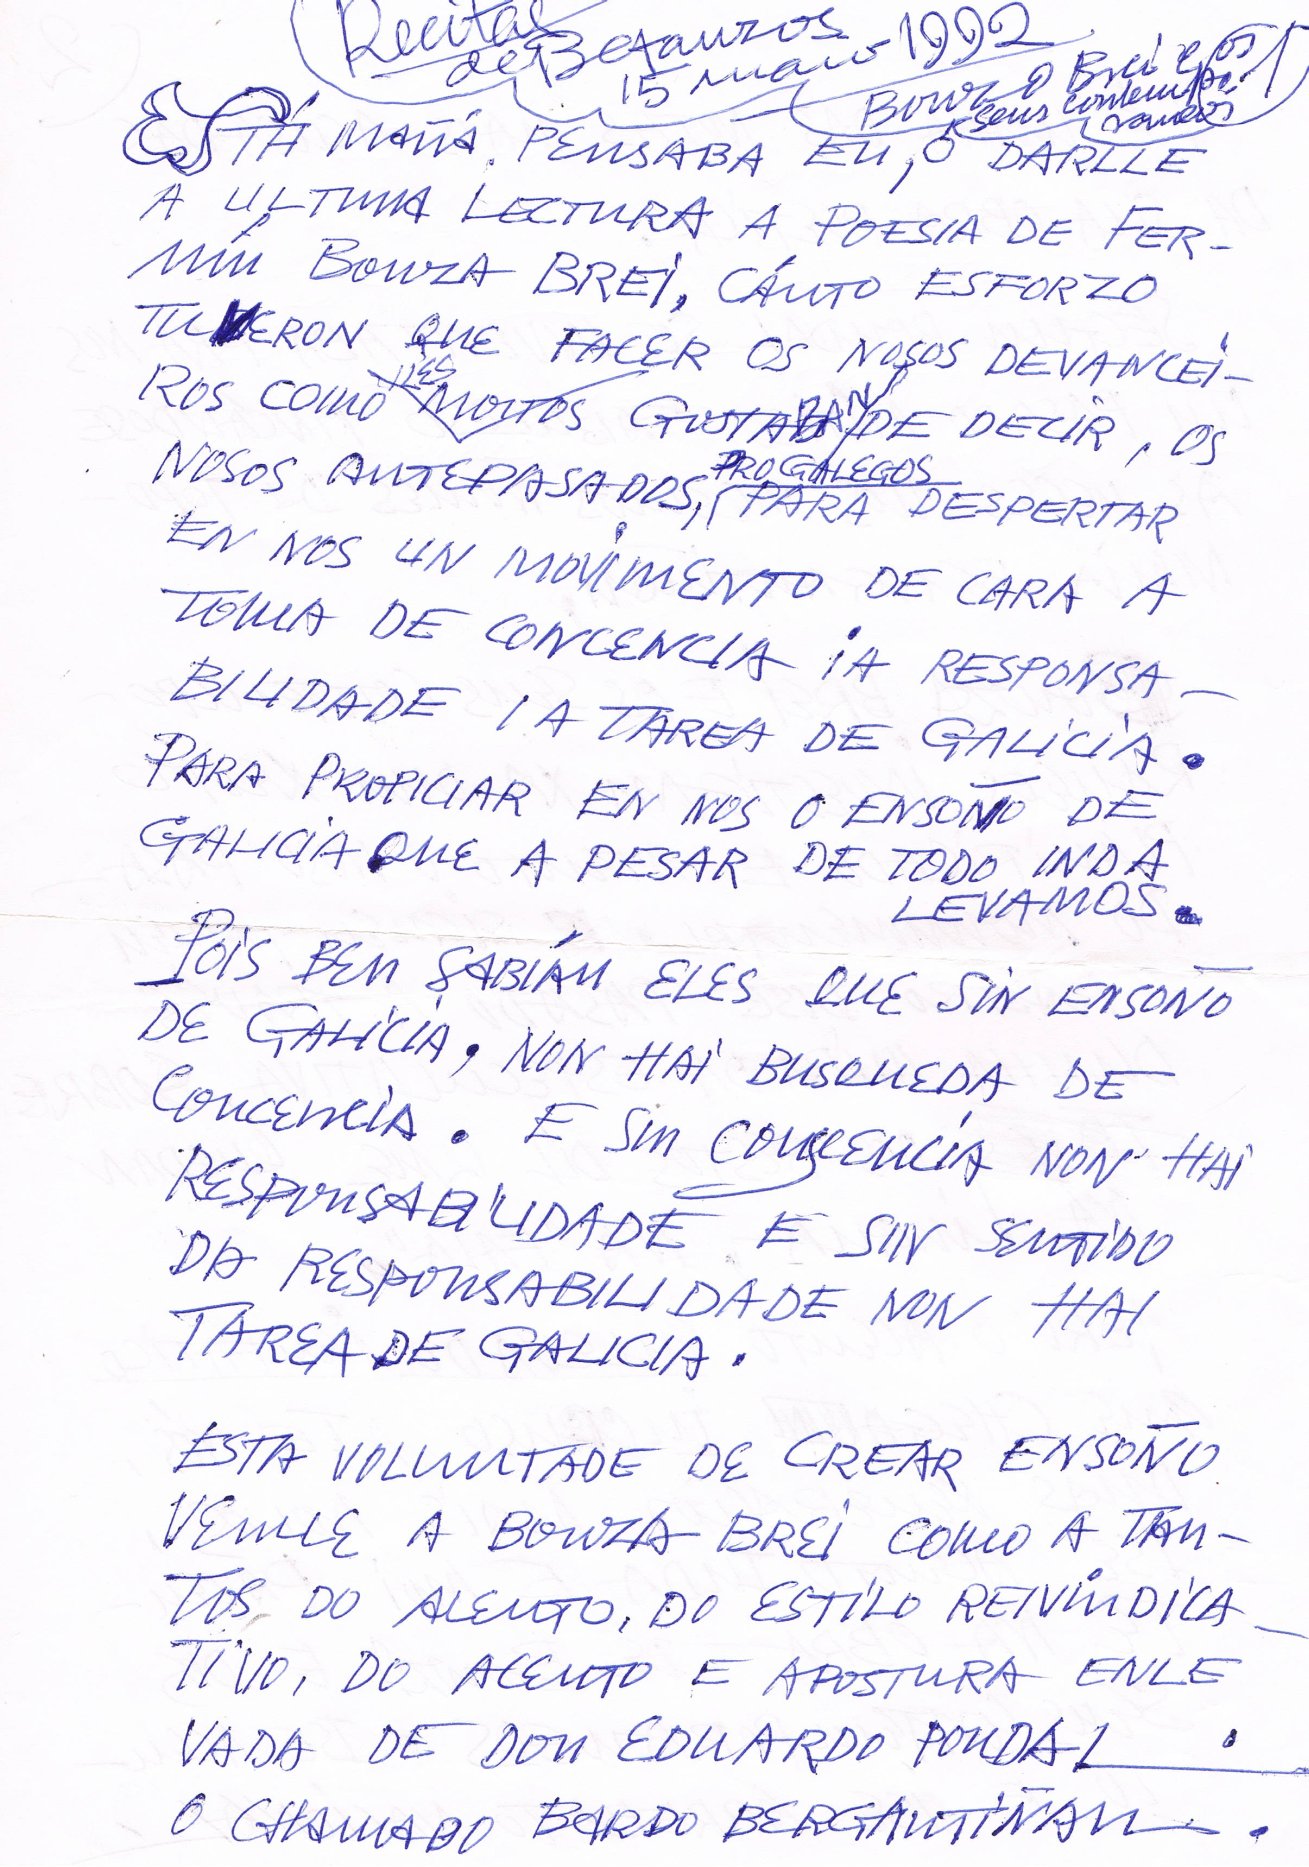 Recital
de Betanzos
15 maio 1992
Bouza Brei e os
seus contempo
raneos
1
ESTÁ MAÑÁ. PENSABA EU, Ó DARLLE
A ULTIMA LECTURA A POESIA DE FER-
MÍN BOUZA BREI, CÁNTO ESFORZO
TUVERON QUE FACER OS NOSOS DEVANCEI-
ROS COMO ILES MOITOS GUSTABAN DE DECIR, OS
NOSOS ANTEPASADOS, PROGALEGOS PARA DESPERTAR
EN NOS UN MOVIMENTO DE CARA A
TOMA DE CONCENCIA IA RESPONSA-
BILIDADE IA TAREA DE GALICIA.
PARA PROPICIAR EN NOS O ENSOÑO DE
GALICIA QUE A PESAR DE TODO INDA
LEVAMOS.
POIS BEN SABIÁN ELES QUE SIN ENSOÑO
DE GALICIA, NON HAI BUSQUEDA DE
CONCENCIA. E SIN CONSCENCIA NON HAI
RESPONSABILIDADE E SIN SENTIDO
DA RESPONSABILIDADE NON HAI
TAREA DE GALICIA.
ESTA VOLUNTADE DE CREAR ENSOÑO
VENLLE A BOUZA BREI COMO A TAN-
TOS DO ALENTO, DO ESTILO REIVINDICA-
TIVO, DO ACENTO E APOSTURA ENLE
VADA DE DON EDUARDO PONDAL.
O CHAMADO BARDO BERGANTIÑAN.